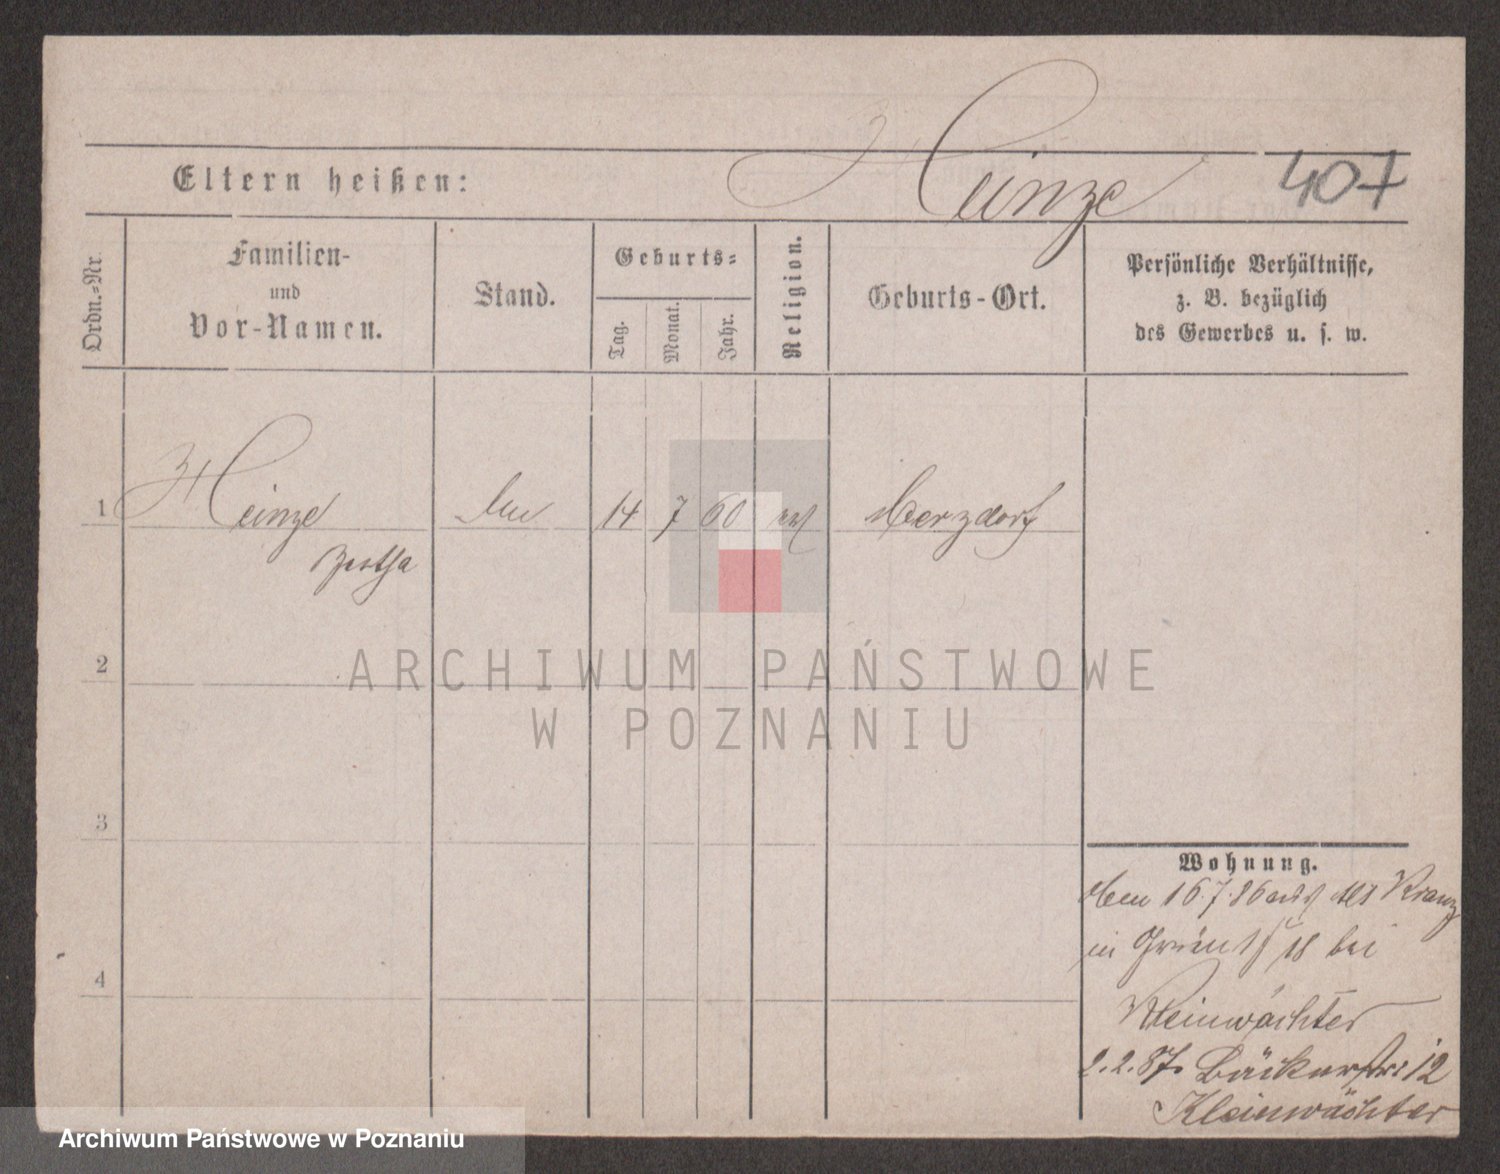 Heinze
407
Eltern heißen:
Ordn.-Nr.
Familien-
und
Vor-Namen.
Stand.
Geburts-
Tag.
Monat.
Jahr.
Religion.
Geburts-Ort.
Persönliche Verhältnisse,
z. B. bezüglich
des Gewerbes u. s. w.
1 Heinze 14 7 60
Bertha
2
3
4
ARCHIWUM PAŃSTWOWE
W POZNANIU
Wohnung.
16.7.86 Kranz
in 18 bei
Kleinwächter
2.2.87. Bäckerstr 12
Kleinwächter
Archiwum Państwowe w Poznaniu